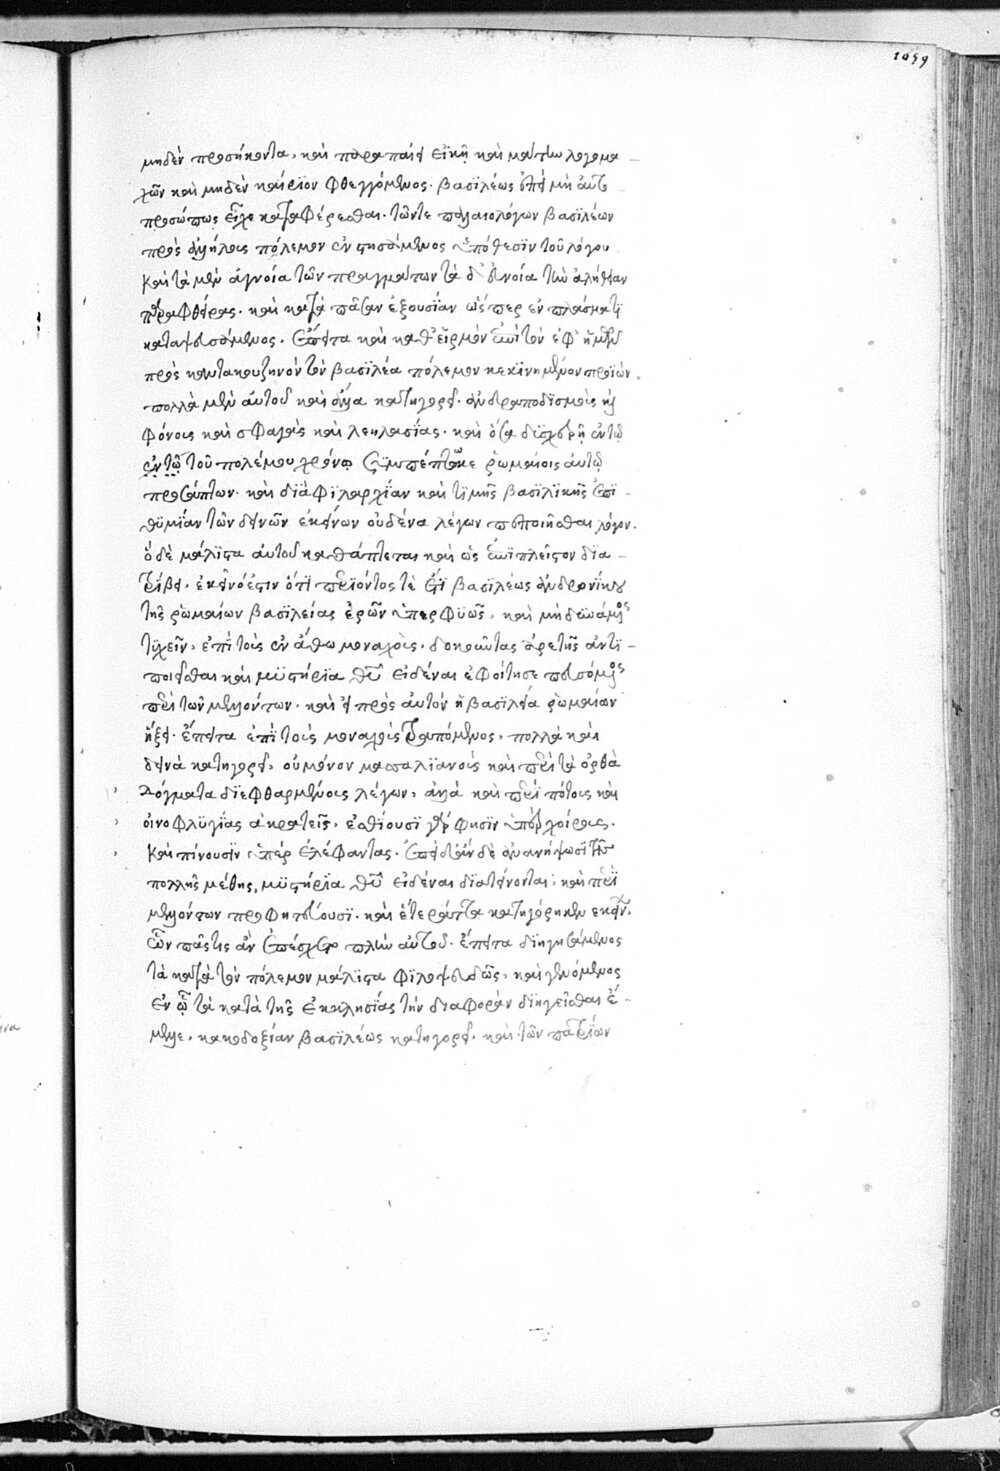 1059
μηδὲν προσήκοντα, καὶ παραπαίει εἰκῆ καὶ μάτην λογομα-
χῶν καὶ μηδὲν καίριον φθεγγόμενος. βασιλέως ἐπεὶ μὴ αὐτο
προσώπως εἶχε καταφέρεσθαι. τῶν τε παλαιολόγων βασϊλέων
πρὸς ἀλλήλους πόλεμον ἐνστησάμενος ὑπόθεσϊν τοῦ λόγου
καὶ τὰ μὲν ἀγνοία τῶν πραγμάτων τὰ δ' ἀνοία τὴν ἀλήθειαν
παραφθείρας. καὶ κατὰ πᾶσαν ἐξουσίαν ὥσπερ ἐν πλάσματϊ
καταψευσάμενος. ἔπειτα καὶ καθ' εἱρμὸν ἐπὶ τὸν ἐφ' ἡμῶν
πρὸς καντακουζηνὸν τὸν βασϊλέα πόλεμον κεκϊνημένον προϊών,
πολλὰ μὲν αὐτοῦ καὶ ἄλλα κατηγορεῖ. ἀνδραποδϊσμοὺς καὶ
φόνους καὶ σφαγὰς καὶ λεηλασίας. καὶ ὅσα δϊσχερῆ ἐν τῷ
ἐν τῷ τοῦ πολέμου χρόνῳ συμπέπτωκε ῥωμαίοις αὐτῷ
προσάπτων. καὶ διὰ φϊλαρχίαν καὶ τϊμῆς βασϊλϊκῆς ἐπϊ-
θϋμίαν τῶν δεινῶν ἐκείνων οὐδένα λέγων πεποιῆσθαι λόγον.
ὃ δὲ μάλϊστα αὐτοῦ καθάπτεται καὶ ὡς ἐπϊπλεῖστον δϊα-
τρίβει. ἐκεῖνό ἐστιν ὅτϊ περϊόντος τὲ ἔτϊ βασϊλέως ἀνδρονίκου
τῆς ῥωμαίων βασϊλείας ἐρῶν ὑπερφϋῶς, καὶ μὴ δϋνάμενος
τϋχεῖν, ἐπὶ τοὺς ἐν ἄθω μοναχοὺς. δοκοῦντας ἀρετῆς ἀντϊ-
ποιεῖσθαι καὶ μϋστήρϊα θεοῦ εἰδέναι ἐφοίτησε πευσόμενος
περὶ τῶν μελλόντων. καὶ εἰ πρὸς αὐτὸν ἡ βασϊλεία ῥωμαίων
ἥξει. ἔπειτα ἐπὶ τοὺς μοναχοὺς τραπόμενος, πολλὰ καὶ
δεινὰ κατηγορεῖ, οὐ μόνον μασαλϊανοὺς καὶ περὶ τὰ ὀρθὰ
δόγματα δϊεφθαρμένους λέγων, ἀλλὰ καὶ περὶ πότους καὶ
οἰνοφλϋγίας ἀκρατεῖς. ἐσθίουσϊ γάρ φησϊν ὑπὲρ χοίρους.
καὶ πίνουσϊν ὑπὲρ ἐλέφαντας. ἐπειδὰν δὲ ἀνανήψωσϊ τῆς
πολλῆς μέθης, μϋστήρϊα θεοῦ εἰδέναι δϊατείνονται, καὶ περὶ
μελλόντων προφητεύουσϊ. καὶ ἕτερ' ἄττα κατηγόρηκεν ἐκείνων.
ὧν πᾶς τις ἂν ἐπέσχε πλὴν αὐτοῦ. ἔπειτα δϊηγησάμενος
τὰ κατὰ τὸν πόλεμον μάλϊστα φϊλοψευδῶς, καὶ γενόμενος
ἐν ᾧ τὰ κατὰ τῆς ἐκκλησίας τὴν διαφορὰν δϊηγεῖσθαι ἔ-
μελλε, κακοδοξίαν βασϊλέως κατηγορεῖ, καὶ τῶν πατρίων